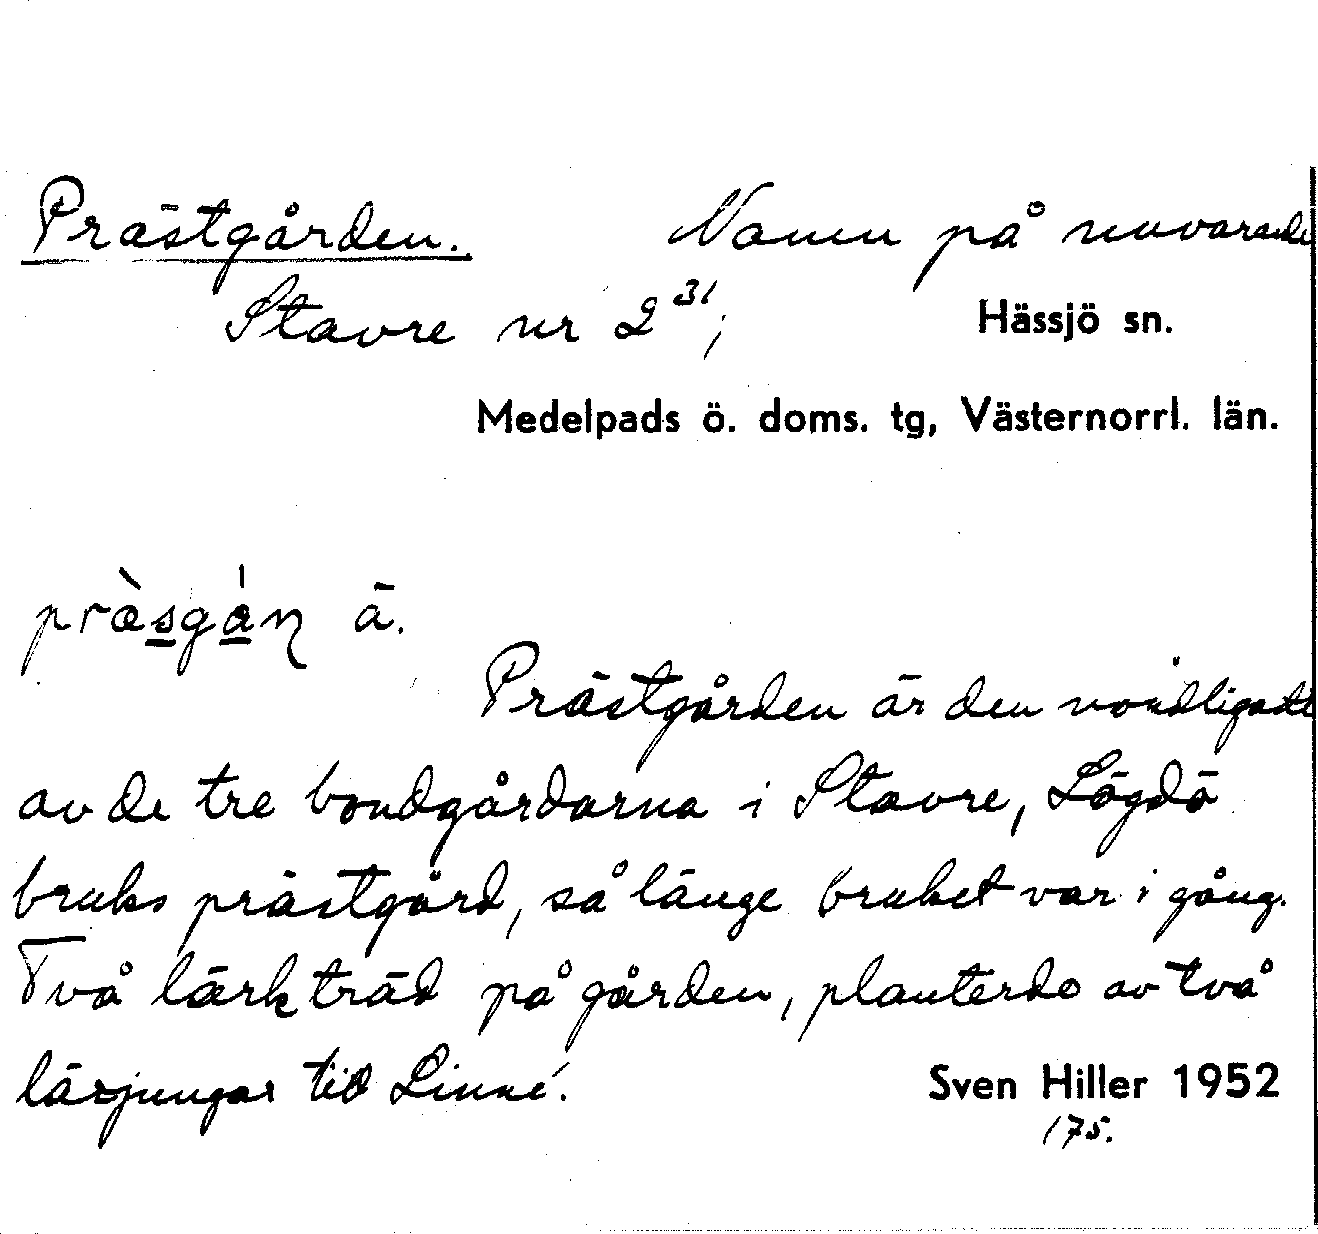 Prästgården. Namn på nuvarande
Stavre nr 2³¹; Hässjö sn.
Medelpads ö. doms. tg, Västernorrl. län.
ä.
Prästgården är den nordligaste
av de tre bondgårdarna i Stavre, Lögdö
bruks prästgård, så länge bruket var i gång.
Två lärkträd på gården, planterde av två
lärjungar till Linné.
Sven Hiller 1952
175.